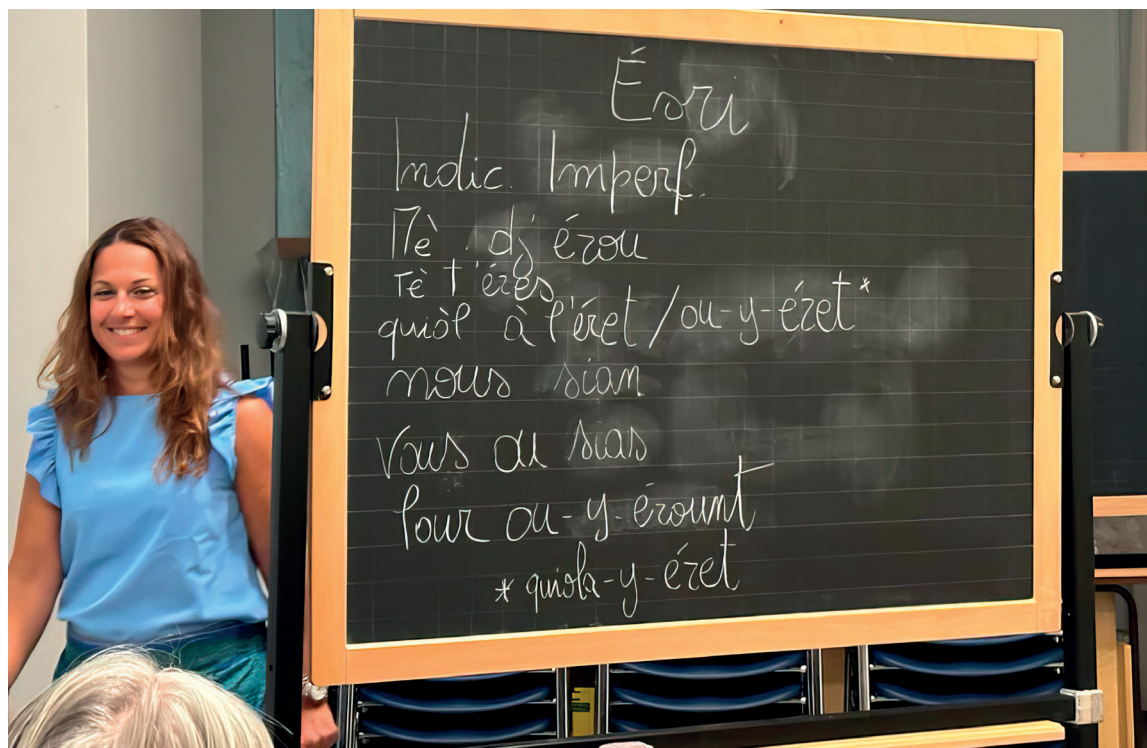 Ésri
Indic. Imperf.
Mè dj'érou
Tè t'éres
quiòl à l'éret / ou-y-éret*
nous sian
Vous ou sias
lour ou-y-érount
* quiola-y-éret